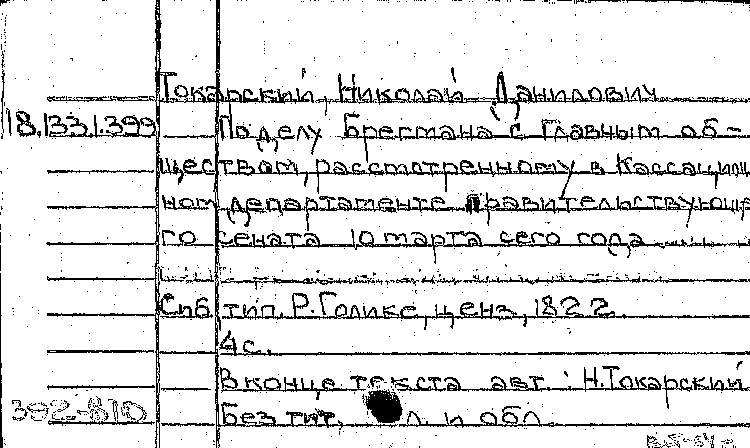 Токарский, Николай Данилович
18.133.1.399 По делу Брегмана с Главным об-
ществом, рассмотренному в Кассацион
ном департаменте правительствующе
го сената 10 марта сего года
Спб тип. Р. Голике, ценз, 1822.
4 с.
В конце текста авт.: Н. Токарский
392-810 Без тит. л. и обл.